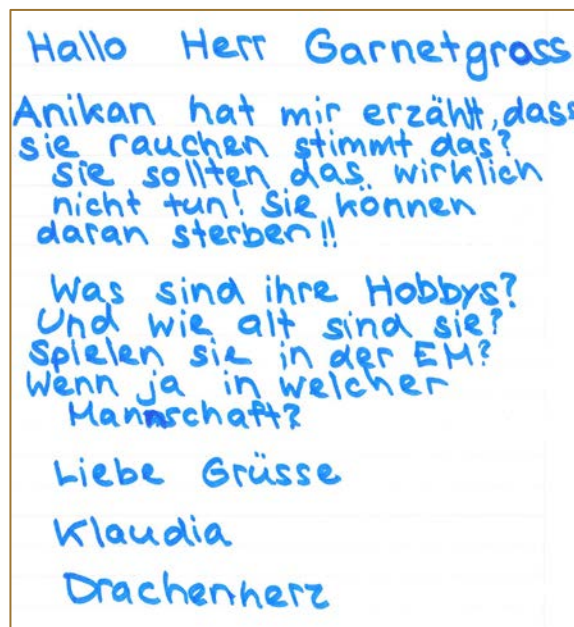 Hallo Herr Garnetgrass
Anikan hat mir erzählt, dass
sie rauchen stimmt das?
sie sollten das wirklich
nicht tun! Sie können
daran sterben!!
Was sind ihre Hobbys?
Und wie alt sind sie?
Spielen sie in der EM?
Wenn ja in welcher
Mannschaft?
Liebe Grüsse
Klaudia
Drachenherz